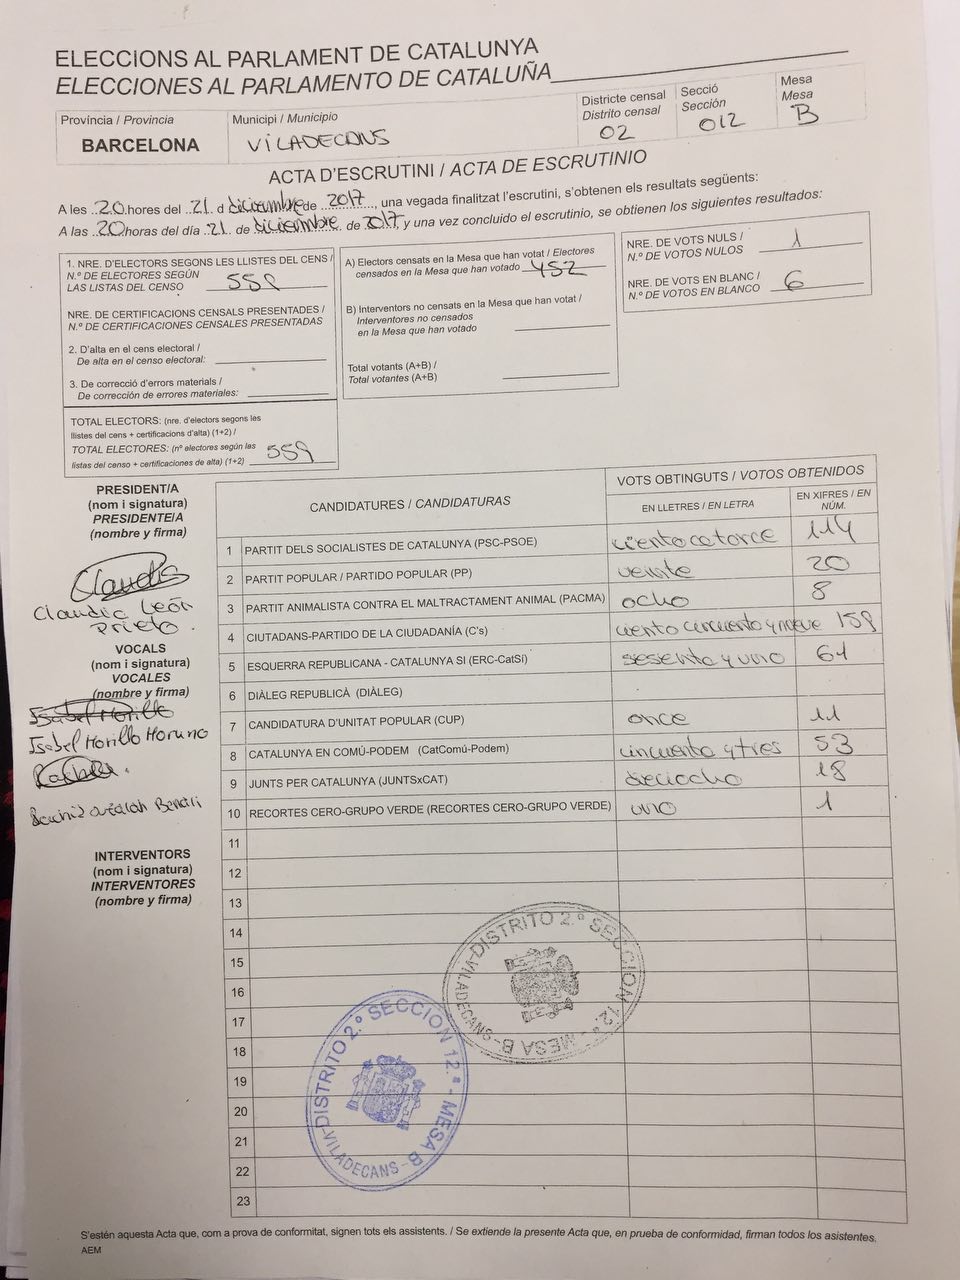 ELECCIONS AL PARLAMENT DE CATALUNYA
ELECCIONES AL PARLAMENTO DE CATALUÑA
Província / Provincia
BARCELONA
Municipi / Municipio
VILADECANS
Districte censal
Distrito censal
02
Secció
Sección
012
Mesa
Mesa
B
ACTA D'ESCRUTINI / ACTA DE ESCRUTINIO
A les ..20..hores del ..21.. d diciembre de ..2017.., una vegada finalitzat l'escrutini, s'obtenen els resultats següents:
A las ..20..horas del día ..21.. de diciembre. de 2017, y una vez concluido el escrutinio, se obtienen los siguientes resultados:
1. NRE. D'ELECTORS SEGONS LES LLISTES DEL CENS /
N.º DE ELECTORES SEGÚN
LAS LISTAS DEL CENSO 559
NRE. DE CERTIFICACIONS CENSALS PRESENTADES /
N.º DE CERTIFICACIONES CENSALES PRESENTADAS
2. D'alta en el cens electoral /
De alta en el censo electoral:
3. De correcció d'errors materials /
De corrección de errores materiales:
TOTAL ELECTORS: (nre. d'electors segons les
llistes del cens + certificacions d'alta) (1+2) /
TOTAL ELECTORES: (nº electores según las
listas del censo + certificaciones de alta) (1+2) 559
A) Electors censats en la Mesa que han votat / Electores
censados en la Mesa que han votado 452
B) Interventors no censats en la Mesa que han votat /
Interventores no censados
en la Mesa que han votado
Total votants (A+B) /
Total votantes (A+B)
NRE. DE VOTS NULS /
N.º DE VOTOS NULOS 1
NRE. DE VOTS EN BLANC /
N.º DE VOTOS EN BLANCO 6
PRESIDENT/A
(nom i signatura)
PRESIDENTE/A
(nombre y firma)
Claudia
Claudia León
Prieto.
VOCALS
(nom i signatura)
VOCALES
(nombre y firma)
Isabel Morillo
Isabel Morillo Moruno
INTERVENTORS
(nom i signatura)
INTERVENTORES
(nombre y firma)
CANDIDATURES / CANDIDATURAS
VOTS OBTINGUTS / VOTOS OBTENIDOS
EN LLETRES / EN LETRA
EN XIFRES / EN
NÚM.
1 PARTIT DELS SOCIALISTES DE CATALUNYA (PSC-PSOE) ciento catorce 114
2 PARTIT POPULAR / PARTIDO POPULAR (PP) veinte 20
3 PARTIT ANIMALISTA CONTRA EL MALTRACTAMENT ANIMAL (PACMA) ocho 8
4 CIUTADANS-PARTIDO DE LA CIUDADANÍA (C's) ciento cincuenta y nueve 159
5 ESQUERRA REPUBLICANA - CATALUNYA SÍ (ERC-CatSí) sesenta y uno 61
6 DIÀLEG REPUBLICÀ (DIÀLEG)
7 CANDIDATURA D'UNITAT POPULAR (CUP) once 11
8 CATALUNYA EN COMÚ-PODEM (CatComú-Podem) cincuenta y tres 53
9 JUNTS PER CATALUNYA (JUNTSxCAT) dieciocho 18
10 RECORTES CERO-GRUPO VERDE (RECORTES CERO-GRUPO VERDE) uno 1
11
12
13
14
15
16
17
18
19
20
21
22
23
DISTRITO 2.º SECCION 12.ª - MESA B - VILADECANS -
DISTRITO 2.º SECCION 12.ª - MESA B - VILADECANS -
S'estén aquesta Acta que, com a prova de conformitat, signen tots els assistents. / Se extiende la presente Acta que, en prueba de conformidad, firman todos los asistentes.
AEM